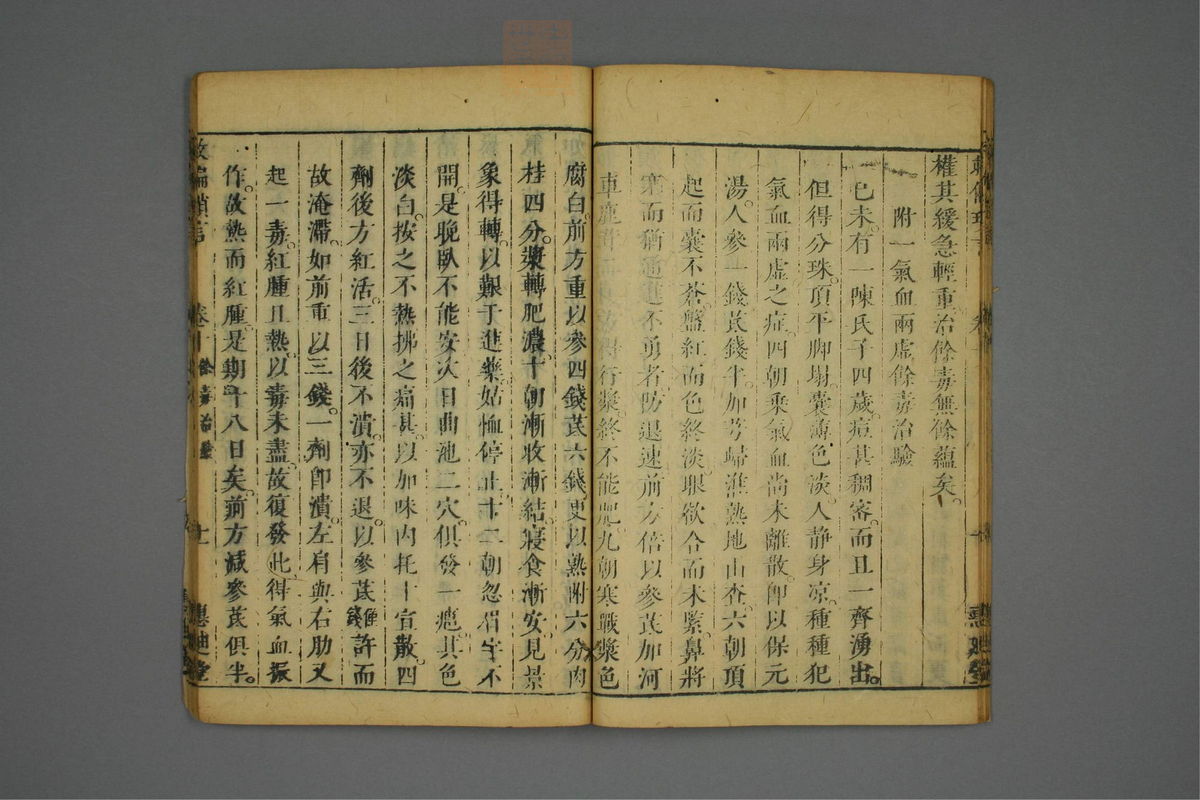 權其緩急輕重治餘毒無餘蘊矣。
附一氣血兩虛餘毒治驗
己未有一陳氏子四歲。痘甚稠密。而且一齊湧出。
但得分珠。頂平脚塌。囊薄色淡。人静身凉。種種犯
氣血兩虛之症。四朝乘氣血尚未離散。卽以保元
湯。人參一錢芪錢半。加芎歸熟地山查。六朝頂
起而囊不蒼。盤紅而色終淡。眼欲合而未緊。鼻將
塞而猶通。進不勇者。防退速。前方倍以參芪加河
車鹿。得行漿。終不能肥。九朝寒戰漿色
腐白。前方重以參四錢芪六錢更以熟附六分肉
桂四分。漿轉肥濃。十朝漸收漸結。寢食漸安。見景
象得轉。以艱于進藥。姑恤停止。十二朝忽眉宇不
開。是晚臥不能安。次日曲池二穴。俱發一㿈其色
淡白。按之不熱。拂之痛甚。以加味内托十宣散。四
劑後方紅活。三日後不潰。亦不退。以參芪錢許而
故淹滯。如前重以三錢。一劑卽潰。左肩與右肋又
起一毒。紅腫且熱。以毒未盡。故復發此。得氣血振
作。故熱而紅腫。是期十八日矣。前方減參芪俱半。
卷十 餘毒治驗 十一 惠迪堂